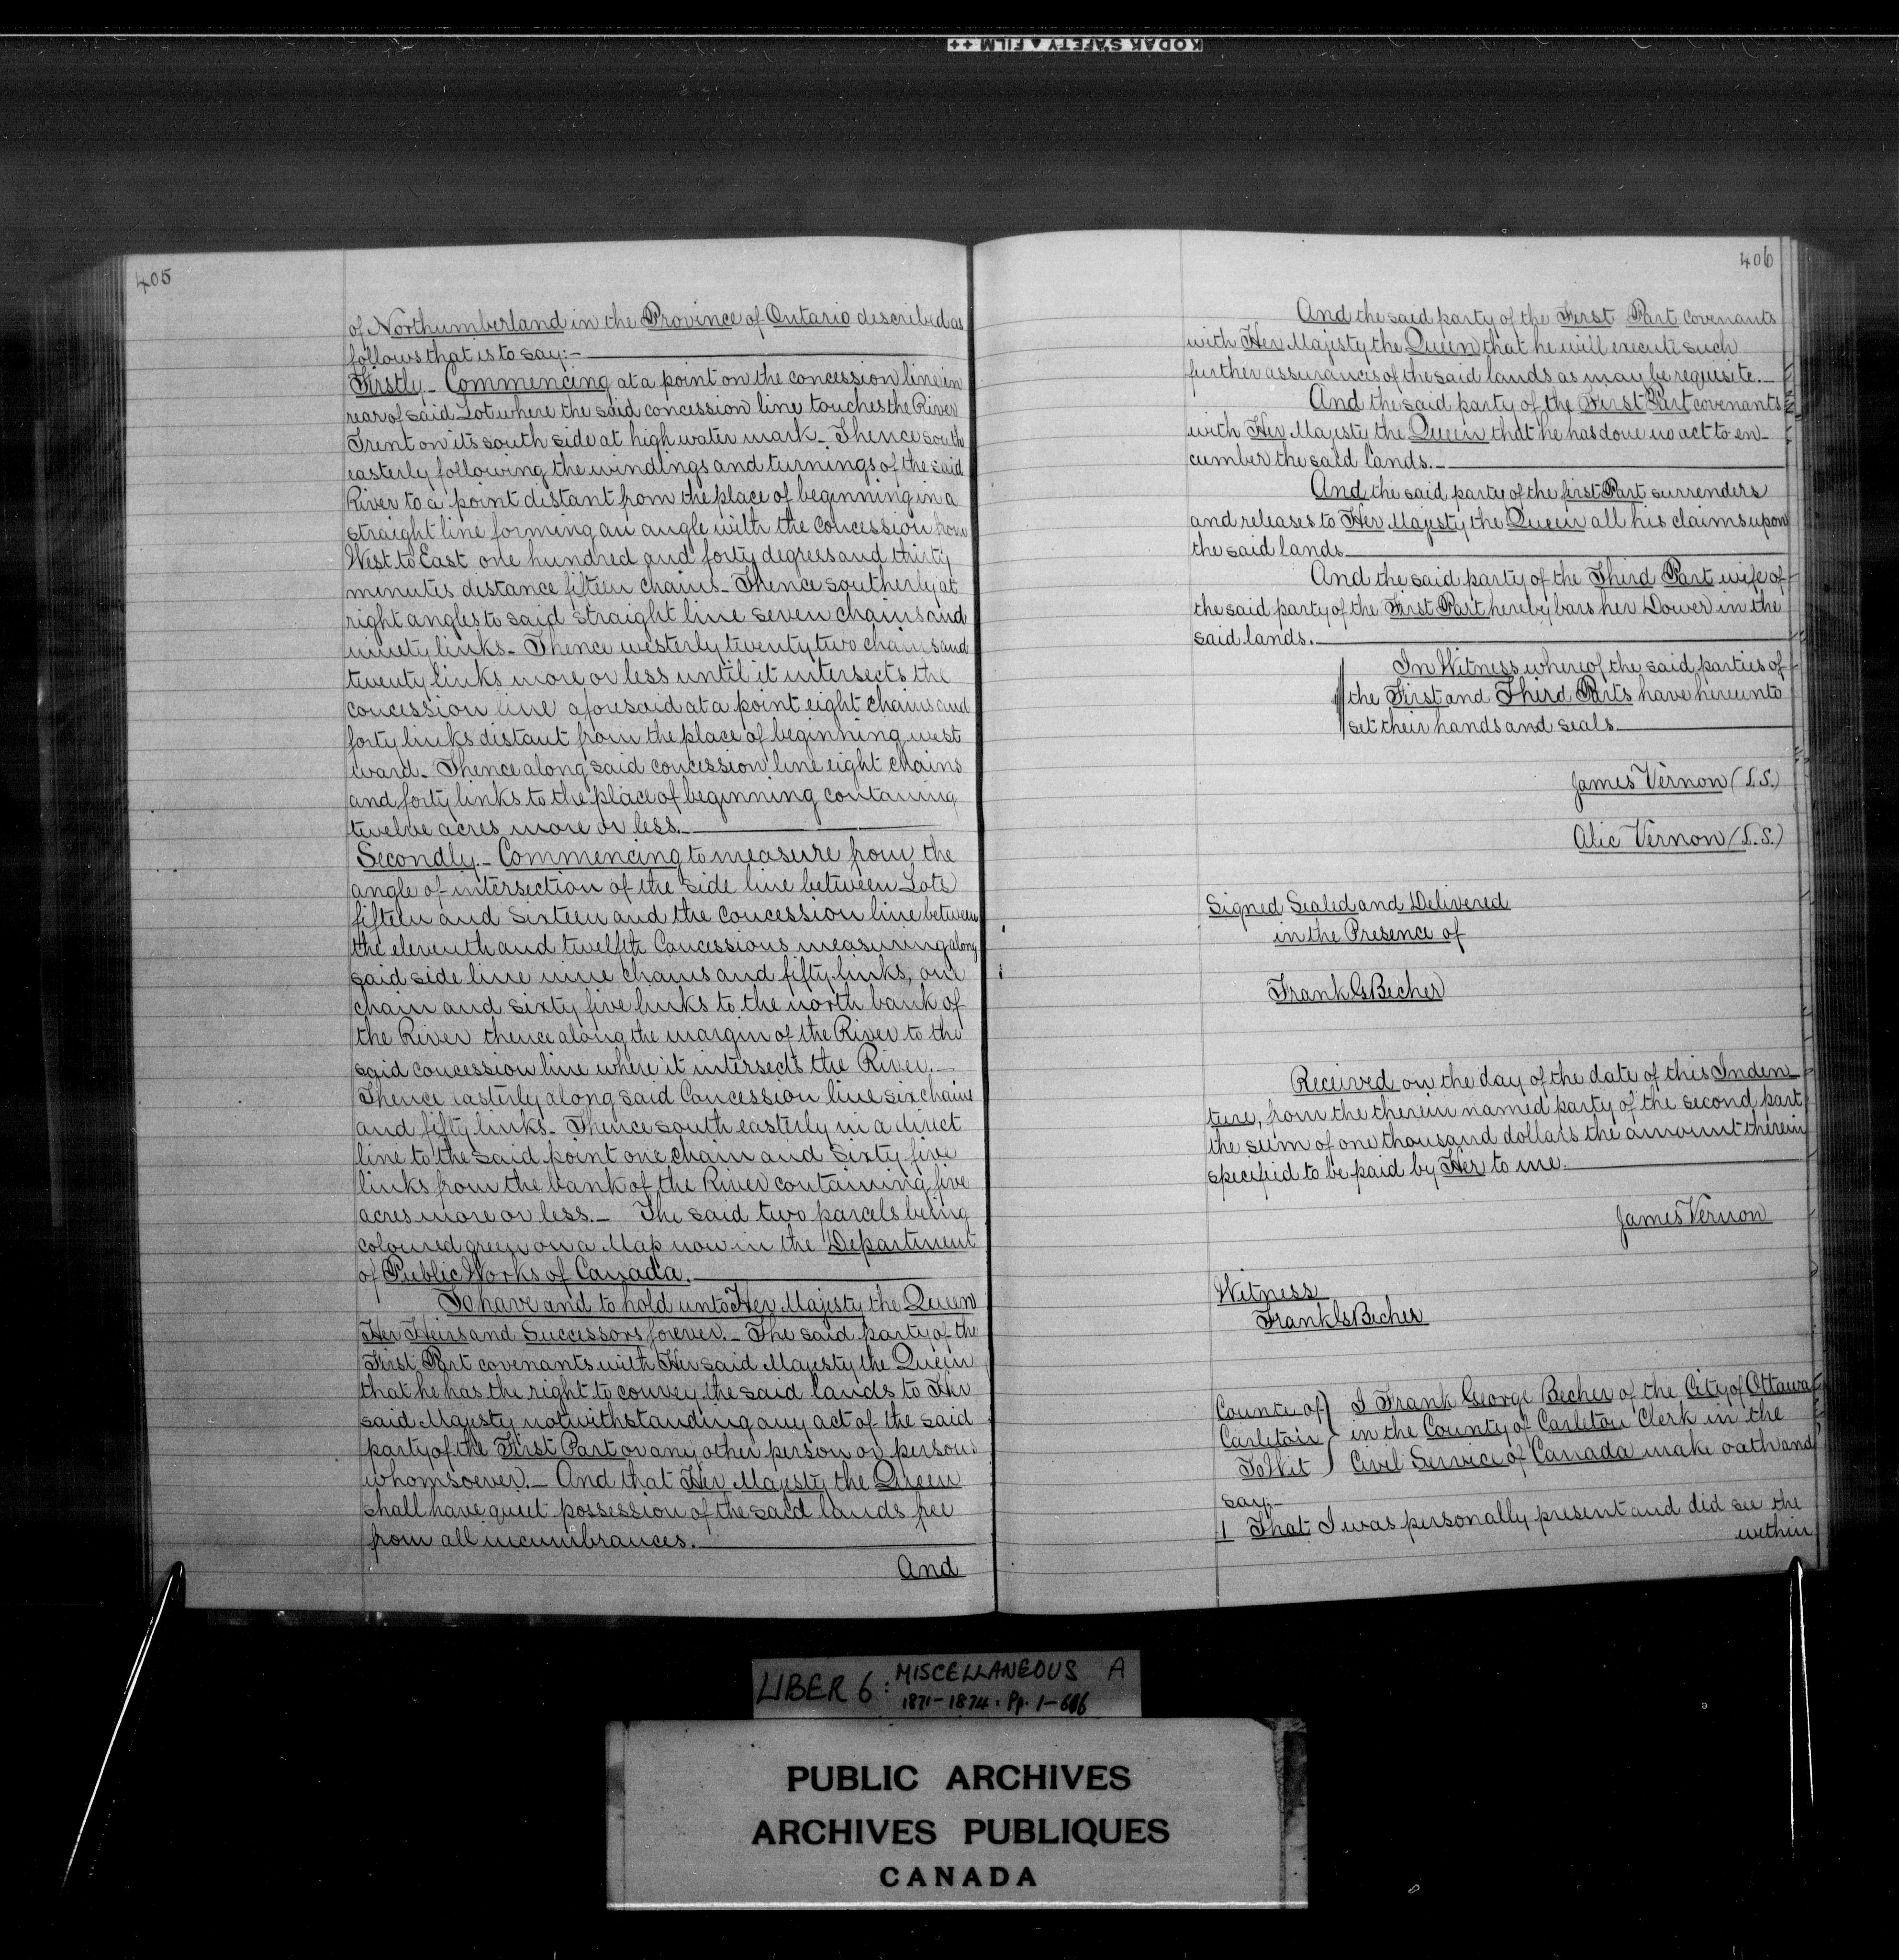 KODAK SAFETY ▲ FILM ++
405
of Northumberland in the Province of Ontario described as
follows that is to say:-
Firstly - Commencing at a point on the concession line in
rear of said Lot where the said concession line touches the River
Trent on its south side at high water mark - Thence south
easterly following the windings and turnings of the said
River to a point distant from the place of beginning in a
straight line forming an angle with the concession from
West to East one hundred and forty degrees and thirty
minutes distance fifteen chains - Thence southerly at
right angles to said straight line seven chains and
ninety links - Thence westerly twenty two chains and
twenty links more or less until it intersects the
concession line aforesaid at a point eight chains and
forty links distant from the place of beginning west
ward - Thence along said concession line eight chains
and forty links to the place of beginning containing
twelve acres more or less. -
Secondly. - Commencing to measure from the
angle of intersection of the side line between Lots
fifteen and sixteen and the concession line between
the eleventh and twelfth Concessions measuring along
said side line nine chains and fifty links, one
chain and sixty five links to the north bank of
the River thence along the margin of the River to the
said concession line where it intersects the River. -
Thence easterly along said Concession line six chains
and fifty links - Thence south easterly in a direct
line to the said point one chain and sixty five
links from the bank of the River containing five
acres more or less. - The said two parcels being
coloured green on a Map now in the Department
of Public Works of Canada.
To have and to hold unto Her Majesty the Queen
Her Heirs and Successors forever. - The said party of the
First Part covenants with Her said Majesty the Queen
that he has the right to convey the said lands to Her
said Majesty notwithstanding any act of the said
party of the First Part or any other person or persons
whomsoever. - And that Her Majesty the Queen
shall have quiet possession of the said lands free
from all incumbrances.
And
406
And the said party of the First Part covenants
with Her Majesty the Queen that he will execute such
further assurances of the said lands as may be requisite. -
And the said party of the First Part covenants
with Her Majesty the Queen that he has done no act to en-
cumber the said lands. -
And the said party of the first Part surrenders
and releases to Her Majesty the Queen all his claims upon
the said lands
And the said party of the Third Part wife of
the said party of the First Part hereby bars her Dower in the
said lands.
In Witness whereof the said parties of
the First and Third Parts have hereunto
set their hands and seals
James Vernon (L.S.)
Alic Vernon (L.S.)
Signed Sealed and Delivered
in the Presence of
Frank G Becher
Received on the day of the date of this Inden-
ture, from the therein named party of the second part
the sum of one thousand dollars the amount therein
specified to be paid by Her to me.
James Vernon
Witness
Frank G Becher
County of } I Frank George Becher of the City of Ottawa
Carleton } in the County of Carleton Clerk in the
To Wit } Civil Service of Canada make oath and
say:-
1 That I was personally present and did see the
within
LIBER 6: MISCELLANEOUS A
1871-1874: Pp. 1-606
PUBLIC ARCHIVES
ARCHIVES PUBLIQUES
CANADA